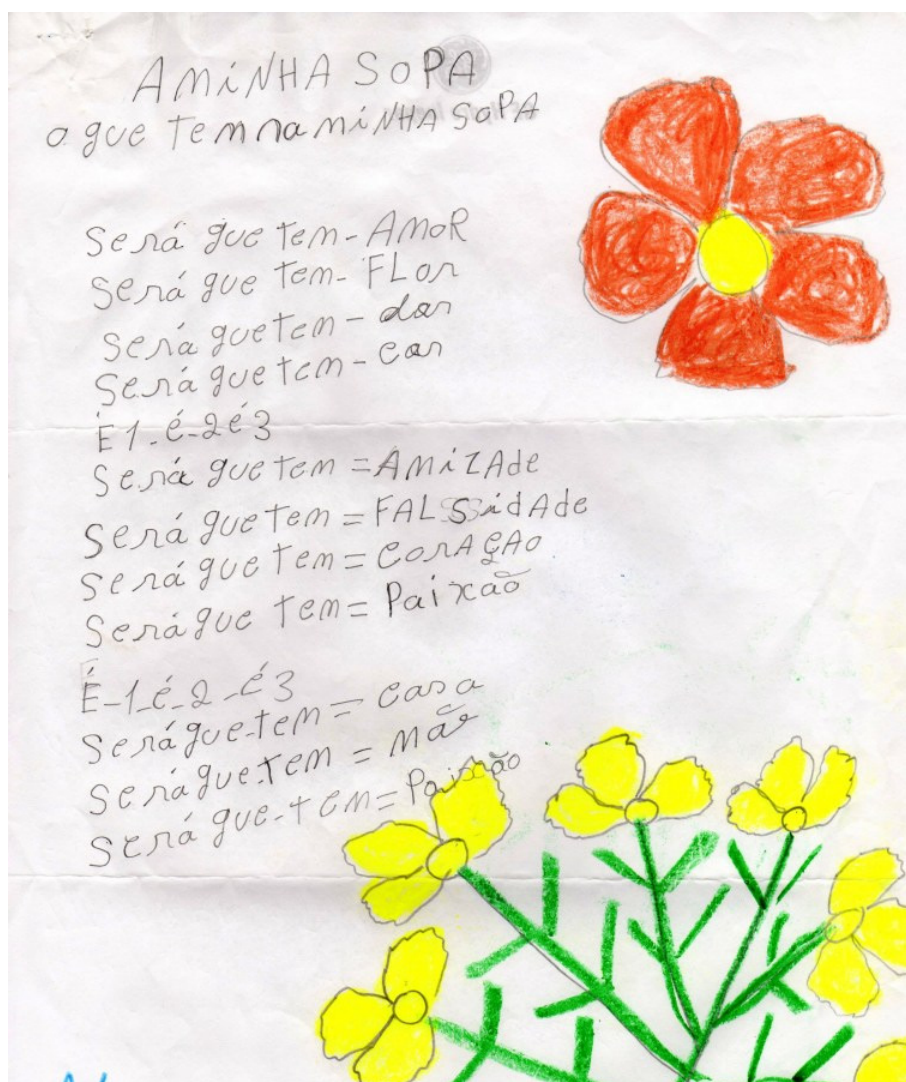 A MiNHA SOPA
o que Tem na miNHA SOPA
Será que tem - AMOR
Será que tem - FLor
Será que tem - dor
Será que tem - cor
É 1 - é - 2 é 3
Será que tem = AMiZAde
Será que tem = FALSSidAde
Será que tem = CorAÇAO
Será que tem = Paixão
É - 1 - é - 2 - é 3
Será que - tem = cara
Será que - tem =
Será que - tem = Paixão